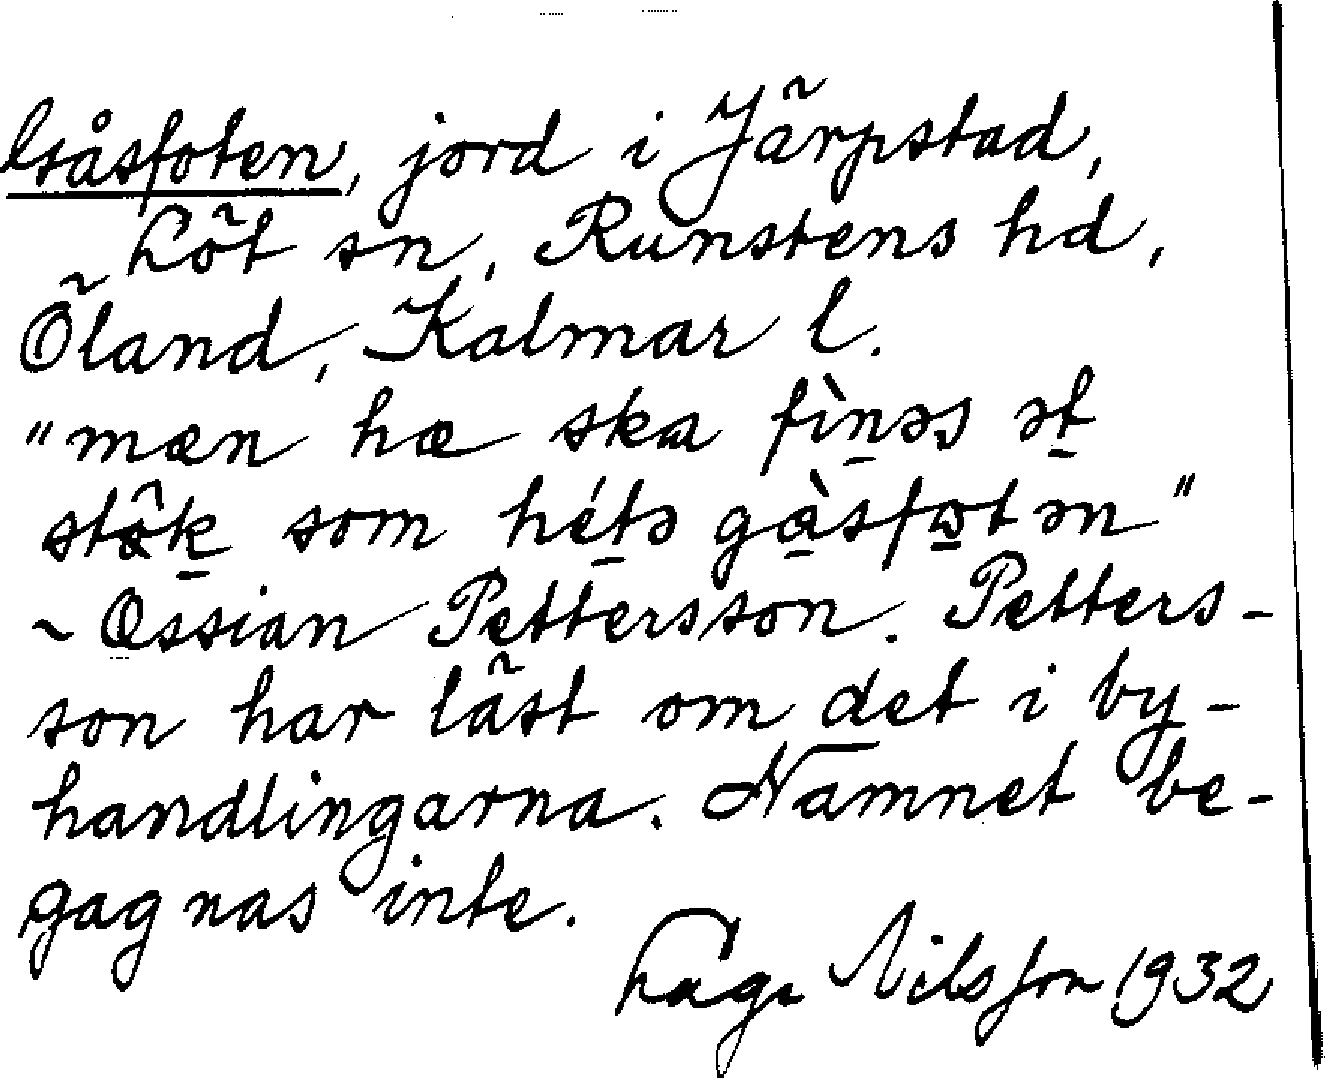 Gåsfoten, jord i Järpstad,
Löt sn, Runstens hd,
Öland, Kalmar l.
"mæn hæ ska fìṉəs əṯ
stôḵ som héṯə gɑ̱̀sfo̱tən"
~ Ossian Pettersson. Petters-
son har läst om det i by-
handlingarna. Namnet be-
gagnas inte.
Lage Nilsson 1932